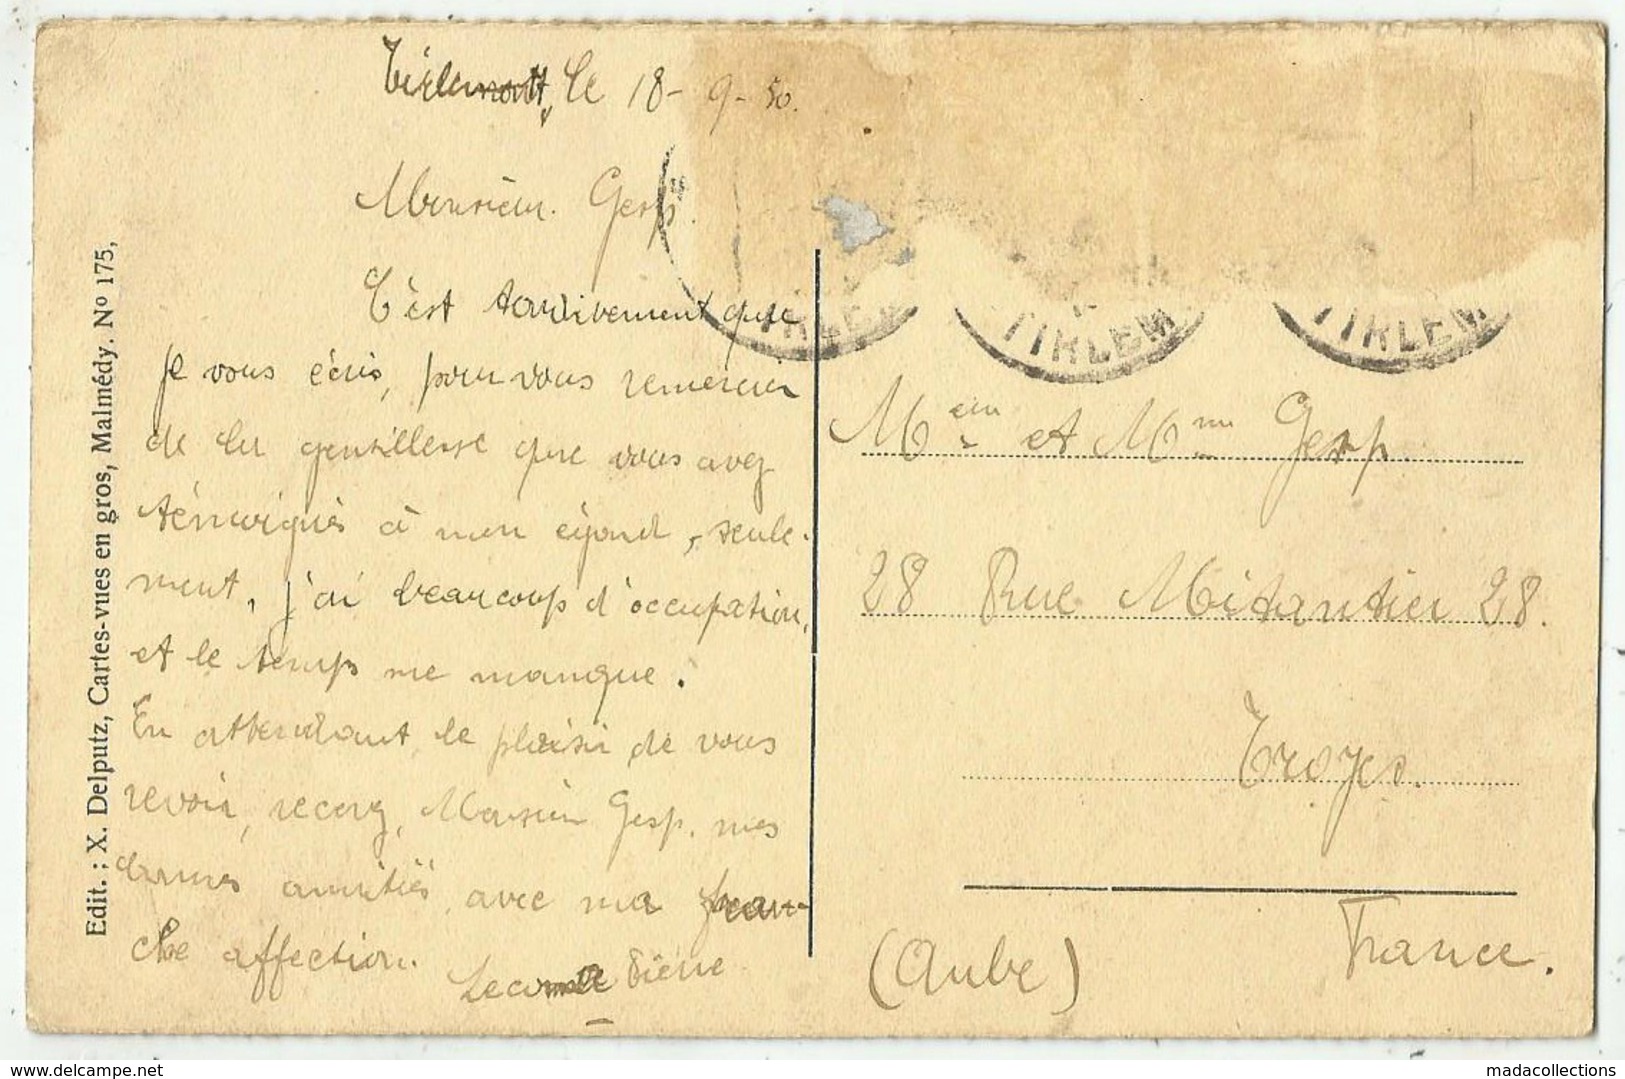 Tirlemont, le 18-9-50.
Monsieur. Gesp.
C'est tardivement que
je vous écris, pour vous remercier
de la gentillesse que vous avez
témoignés à mon égard, seule-
ment, j'ai beaucoup d'occupation,
et le temps me manque.
En attendant le plaisir de vous
revoir, recevez, Monsieur Gesp, mes
bonnes amitiés, avec ma fran-
che affection.
Pierre
Edit. : X. Delputz, Cartes-vues en gros, Malmédy. Nº 175,
TIRLEM
TIRLEM
TIRLEM
M et Mme Gesp
28 Rue Mitantier 28.
Troyes.
(Aube) France.
madacollections